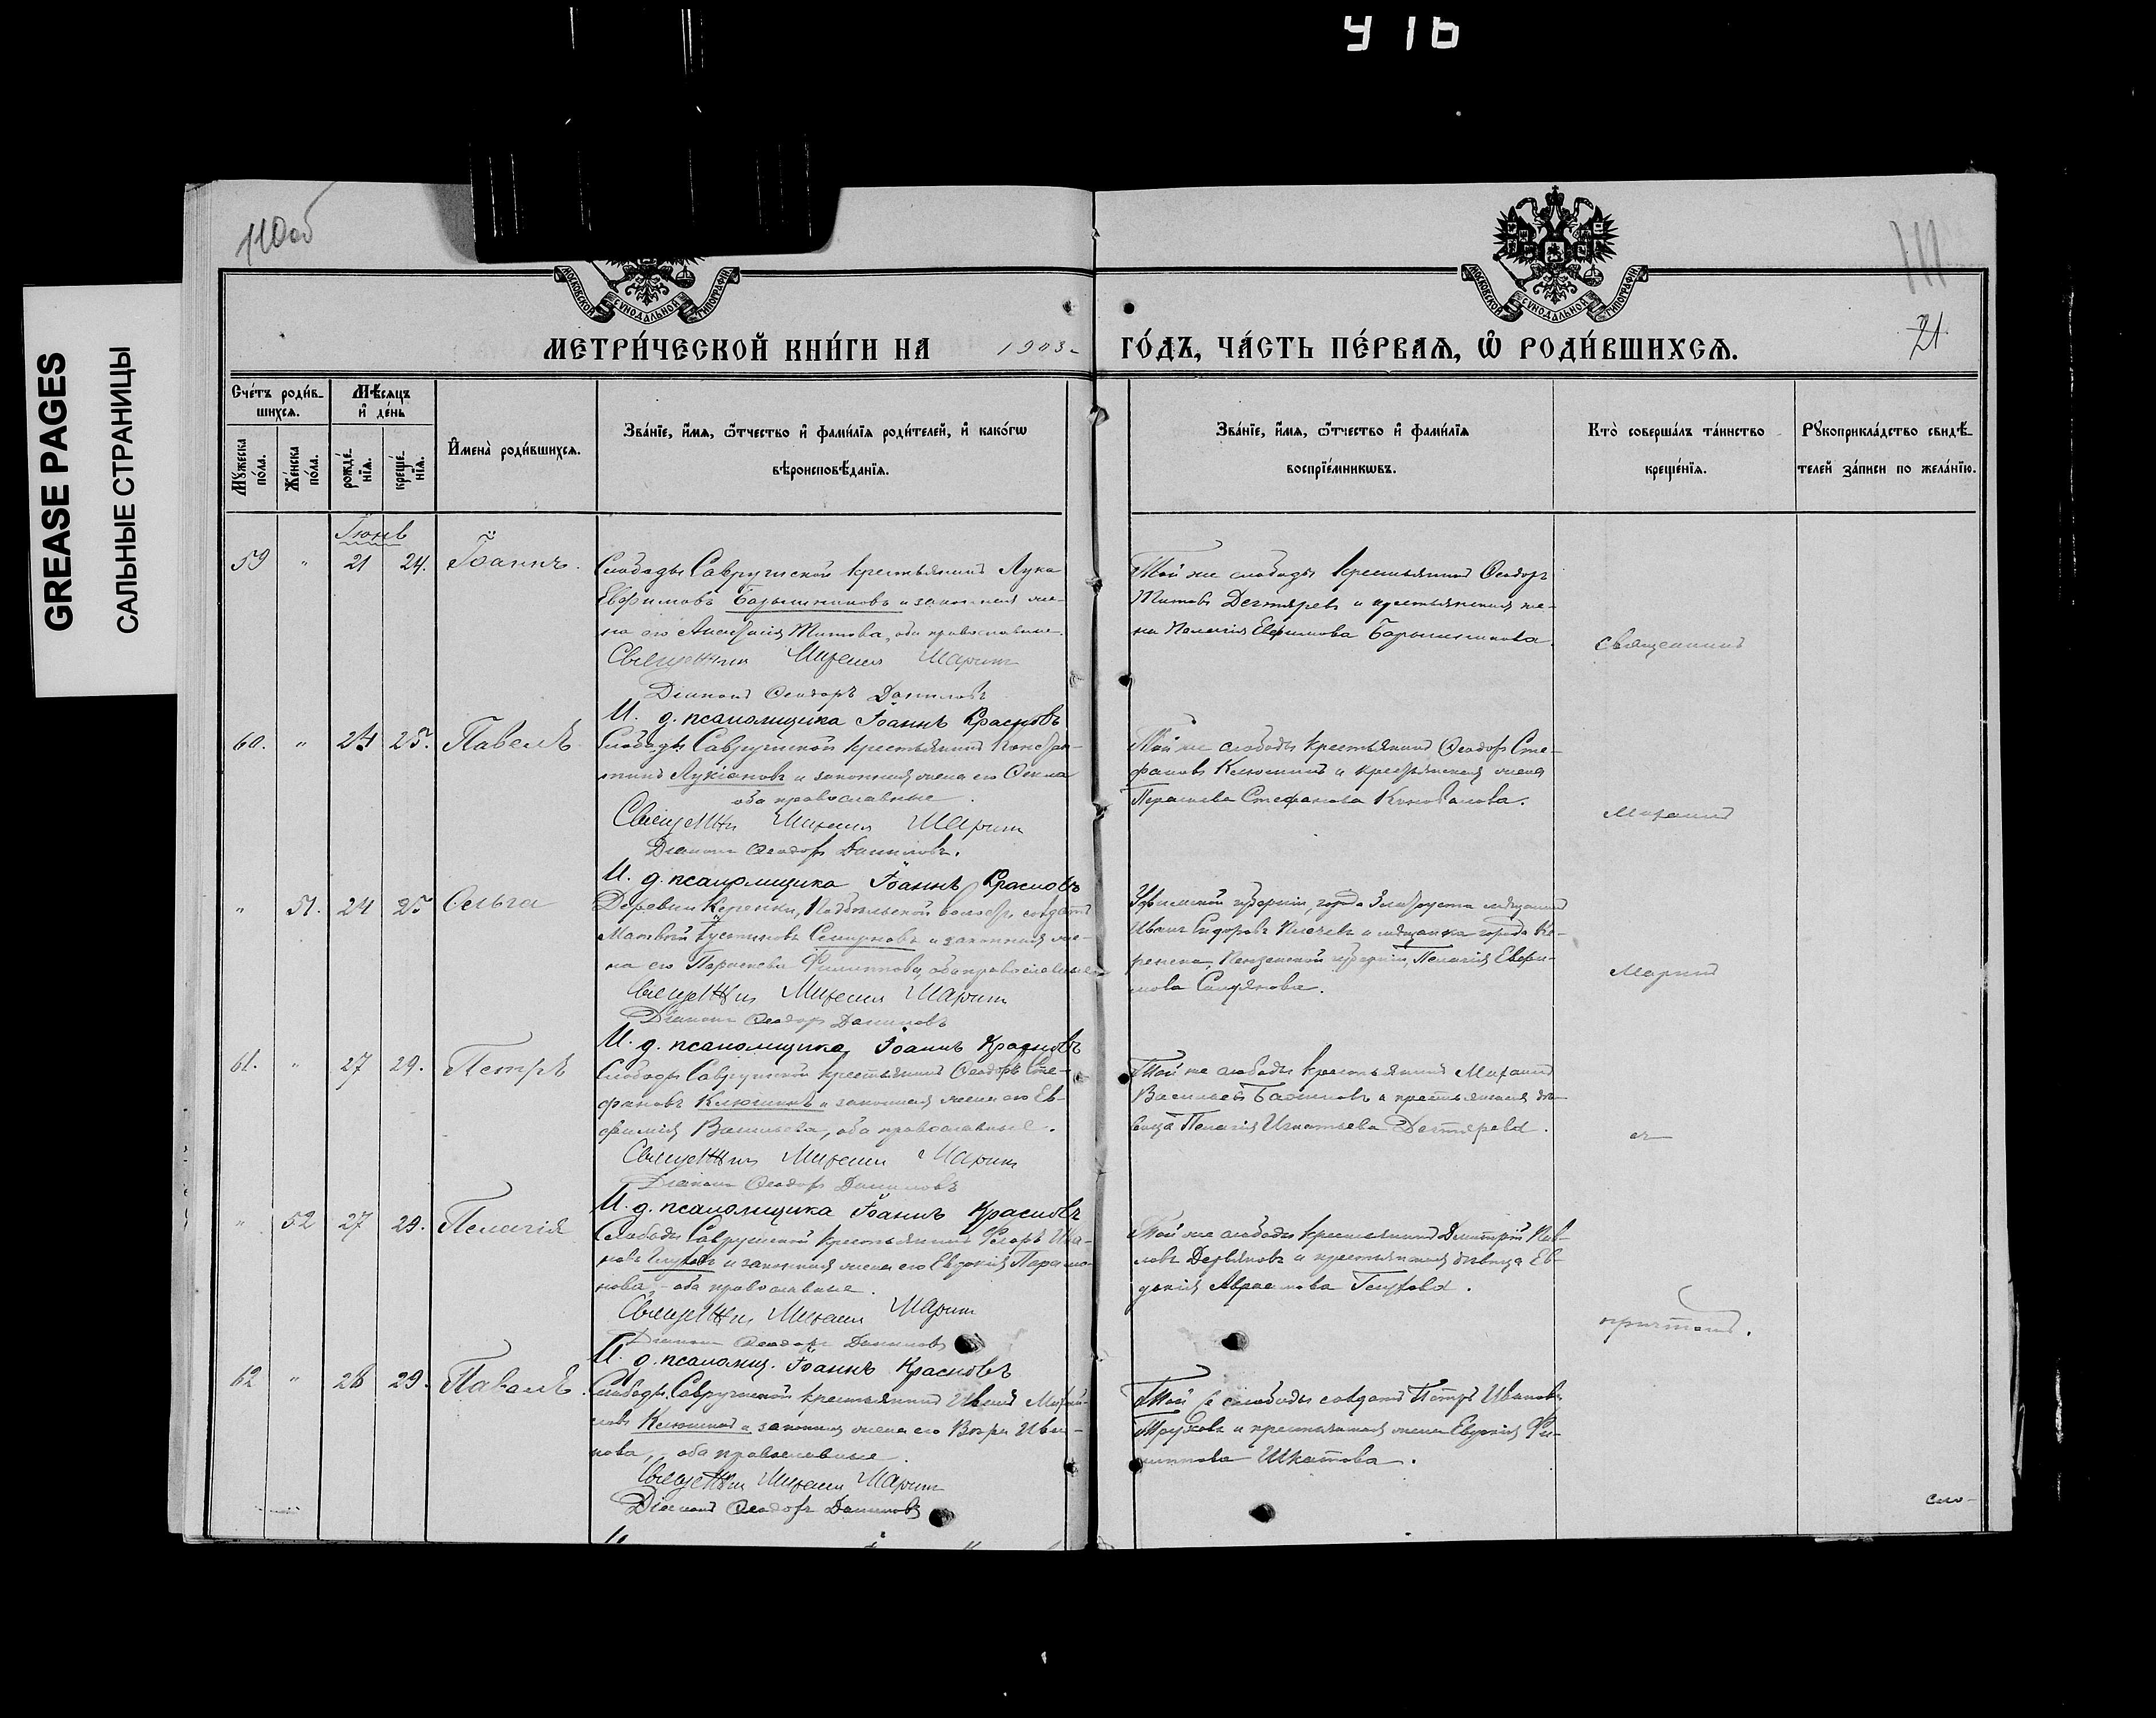 916
GREASE PAGES
САЛЬНЫЕ СТРАНИЦЫ
110об
111
21
МОСКОВСКОЙ СѴНОДАЛЬНОЙ ТИПОГРАФІИ
МОСКОВСКОЙ СѴНОДАЛЬНОЙ ТИПОГРАФІИ
МЕТРИ́ЧЕСКОЙ КНИ́ГИ НА 1903 ГО́ДЪ, ЧА́СТЬ ПЕ́РВАѦ, Ѽ РОДИ́ВШИХСѦ.
Сче́тъ роди́в-
шихсѧ.
Мꙋжеска по́ла.
Же́нска по́ла.
Мѣ́сѧцъ
и҆ де́нь
рожде́-
нїѧ.
креще́-
нїѧ.
И҆мена̀ роди́вшихсѧ.
Зва́нїе, и҆́мѧ, ѻ҆́тчество и҆ фами́лїѧ роди́телей, и҆ како́гѡ
вѣроисповѣ́данїѧ.
Зва́нїе, и҆́мѧ, ѻ҆́тчество и҆ фами́лїѧ
воспрїе́мникѡвъ.
Кто̀ соверша́лъ та́инство
креще́нїѧ.
Рꙋкоприкла́дство свидѣ́-
телей за́писи по жела́нїю.
Іюнь
59 " 21 24. Іоаннъ.
Слободы Саврушской крестьянинъ Лука
Евфимовъ Барышниковъ и законная же-
на его Анастасія Титова, оба православные.
Священник Михаил Марин
Діаконъ Ѳеодоръ Даниловъ
И. д. псаломщика Іоаннъ Красновъ
Той же слободы крестьянинъ Ѳеодоръ
Титовъ Дегтяревъ и крестьянская же-
на Пелагія Евфимова Барышникова.
Священникъ
60. " 24 25. Павелъ
Слободы Саврушской крестьянинъ Констан-
тинъ Лукіановъ и законная жена его Ѳекла
оба православные.
Священник Михаил Марин
Діаконъ Ѳеодоръ Даниловъ.
И. д. псаломщика Іоаннъ Красновъ
Той же слободы крестьянинъ Ѳеодоръ Сте-
фановъ Клюшинъ и крестьянская жена
Параскева Стефанова Коновалова.
Михаилъ
" 51. 24 25 Ольга
Деревни Керенки, волости солдатъ
Матвей Іустиновъ Смирновъ и законная же-
на его Параскева Филиппова, оба православные
Священник Михаил Марин
Діаконъ Ѳеодоръ Даниловъ
И. д. псаломщика, Іоаннъ Красновъ
Уфимской губерніи, города Златоуста мѣщанинъ
Иванъ Сидоровъ и мѣщанка города Ке-
ренска, Пензенской губерніи, Пелагія Евфи-
мова
Маринъ
61. " 27 29. Петръ
Слободы Саврушской крестьянинъ Ѳеодоръ Сте-
фановъ Клюшинъ и законная жена его Ев-
фимія Васильева, оба православные.
Священник Михаил Марин
Діаконъ Ѳеодоръ Даниловъ
И. д. псаломщика Іоаннъ Красновъ
Той же слободы крестьянинъ Михаилъ
Васильевъ и крестьянская дѣ-
вица Пелагія Игнатьева Дегтярева.
съ
" 52 27 29. Пелагія
Слободы Саврушской крестьянинъ Ива-
новъ Глуховъ и законная жена его Евдокія Парамо-
нова, - оба православные.
Священник Михаил Марин
Діаконъ Ѳеодоръ Даниловъ
И. д. псаломщ. Іоаннъ Красновъ
Той же слободы крестьянинъ Димитрій Пав-
ловъ и крестьянская дѣвица Ев-
докія Авраамова Глухова.
причтомъ.
62 " 28 29. Павелъ.
Слободы Саврушской крестьянинъ Иванъ Михай-
ловъ Клюшинъ и законная жена его Вѣра Ива-
нова, - оба православные.
Священник Михаил Марин
Діаконъ Ѳеодоръ Даниловъ
Той же слободы солдатъ Петръ Ивановъ
и крестьянская жена Евдокія Фи-
липпова Шкатова.